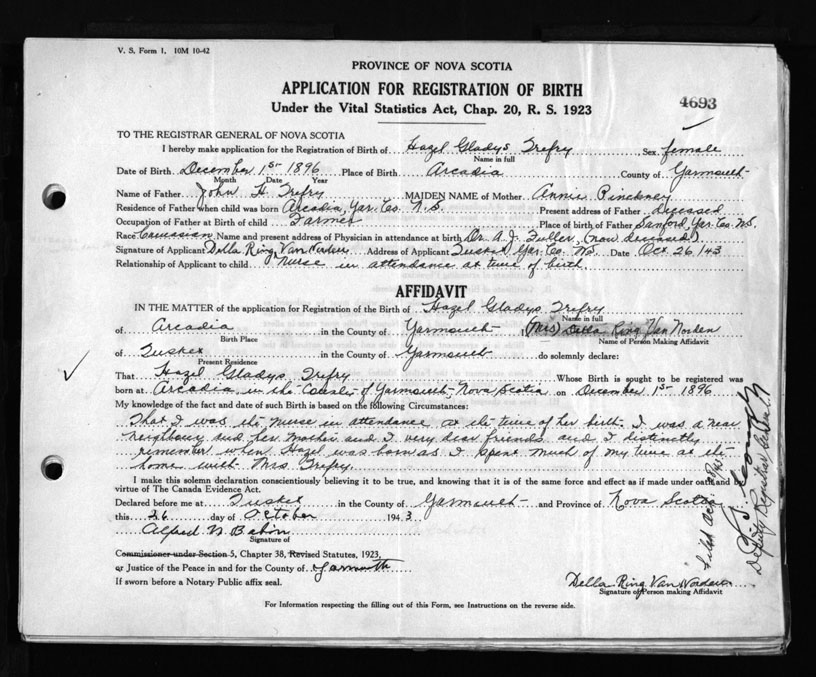 V. S. Form 1. 10M 10-42
PROVINCE OF NOVA SCOTIA
APPLICATION FOR REGISTRATION OF BIRTH
4693
Under the Vital Statistics Act, Chap. 20, R. S. 1923
TO THE REGISTRAR GENERAL OF NOVA SCOTIA
I hereby make application for the Registration of Birth of Hazel Gladys Trefry, Sex female
Name in full
Date of Birth December 1st 1896 Place of Birth Arcadia County of Yarmouth
Month Date Year
Name of Father John H. Trefry MAIDEN NAME of Mother Annie Pinckney
Residence of Father when child was born Arcadia, Yar. Co. N.S. Present address of Father deceased
Occupation of Father at Birth of child Farmer Place of birth of Father Sanford, Yar. Co. N.S.
Race Caucasian Name and present address of Physician in attendance at birth Dr. A. J. Fuller, (now deceased.)
Signature of Applicant Della Ring Van Norden Address of Applicant Tusket Yar. Co. N.S. Date Oct 26/43
Relationship of Applicant to child Nurse in attendance at time of birth
AFFIDAVIT
IN THE MATTER of the application for Registration of the Birth of Hazel Gladys Trefry
Name in full
of Arcadia in the County of Yarmouth (Mrs) Della Ring Van Norden
Birth Place Name of Person Making Affidavit
of Tusket in the County of Yarmouth do solemnly declare:
Present Residence
That Hazel Gladys Trefry Whose Birth is sought to be registered was
born at Arcadia in the County of Yarmouth, Nova Scotia on December 1st 1896
My knowledge of the fact and date of such Birth is based on the following Circumstances:
That I was the nurse in attendance at the time of her birth. I was a near
neighbour and her mother and I very dear friends and I distinctly
remember when Hazel was born as I spent much of my time at the
home with Mrs. Trefry.
I make this solemn declaration conscientiously believing it to be true, and knowing that it is of the same force and effect as if made under oath and by
virtue of The Canada Evidence Act.
Declared before me at Tusket in the County of Yarmouth and Province of Nova Scotia
this 26 day of October 1943
Alfred N Babin
Signature of
Commissioner under Section 5, Chapter 38, Revised Statutes, 1923,
or Justice of the Peace in and for the County of Yarmouth
If sworn before a Notary Public affix seal.
Della Ring Van Norden
Signature of Person making Affidavit
For Information respecting the filling out of this Form, see Instructions on the reverse side.
Filed
Deputy Registrar General